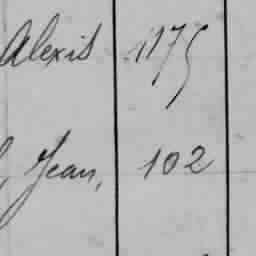 Alexis 1175
, Jean, 102